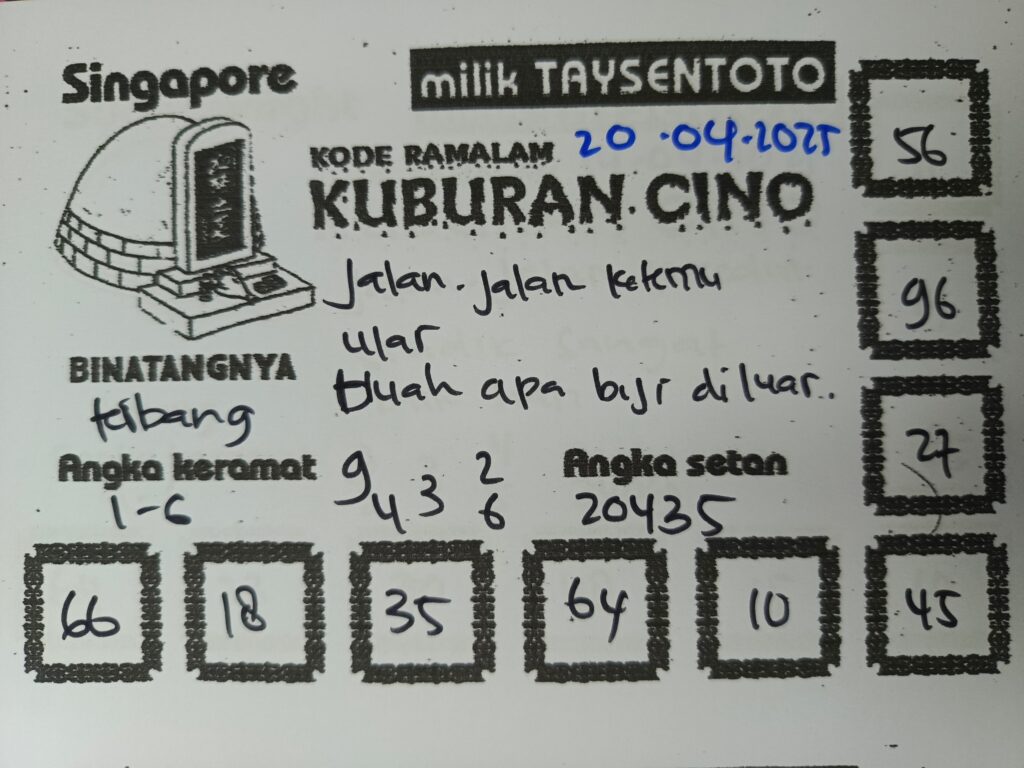 Singapore
milik TAYSENTOTO
20-04-2025
KODE RAMALAM
KUBURAN CINO
Jalan-jalan ketemu
ular
buah apa biji diluar.
BINATANGNYA
terbang
Angka keramat
1-6
9 4 3 2 6
Angka setan
20435
56
96
27
66
18
35
64
10
45